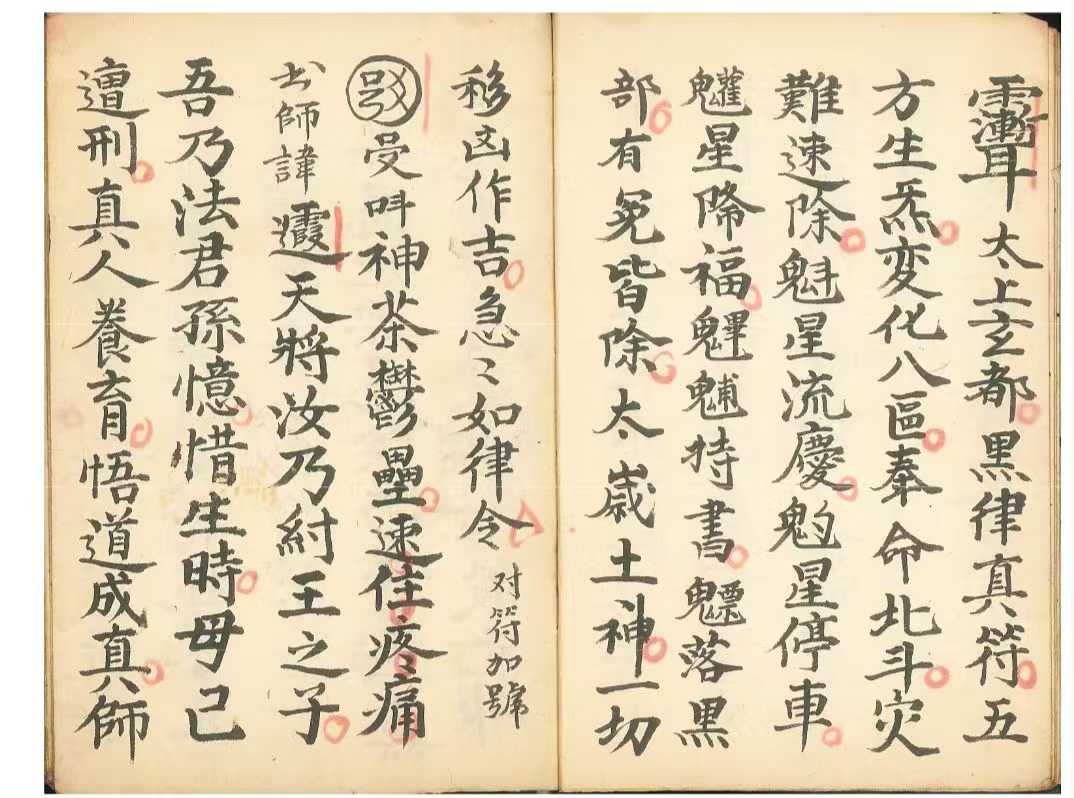 太上玄都黑律真符五
方生炁変化八區奉命北斗灾
難速除魁星流慶星停車
星降福魓持書魒落黑
部有冤皆除太歲土神一切
移凶作吉急〻如律令
对符加號
受叫神荼鬱壘速住疼痛
书師諱天將汝乃紂王之子
吾乃法君孫憶惜生時母已
遭刑真人養育悟道成真師